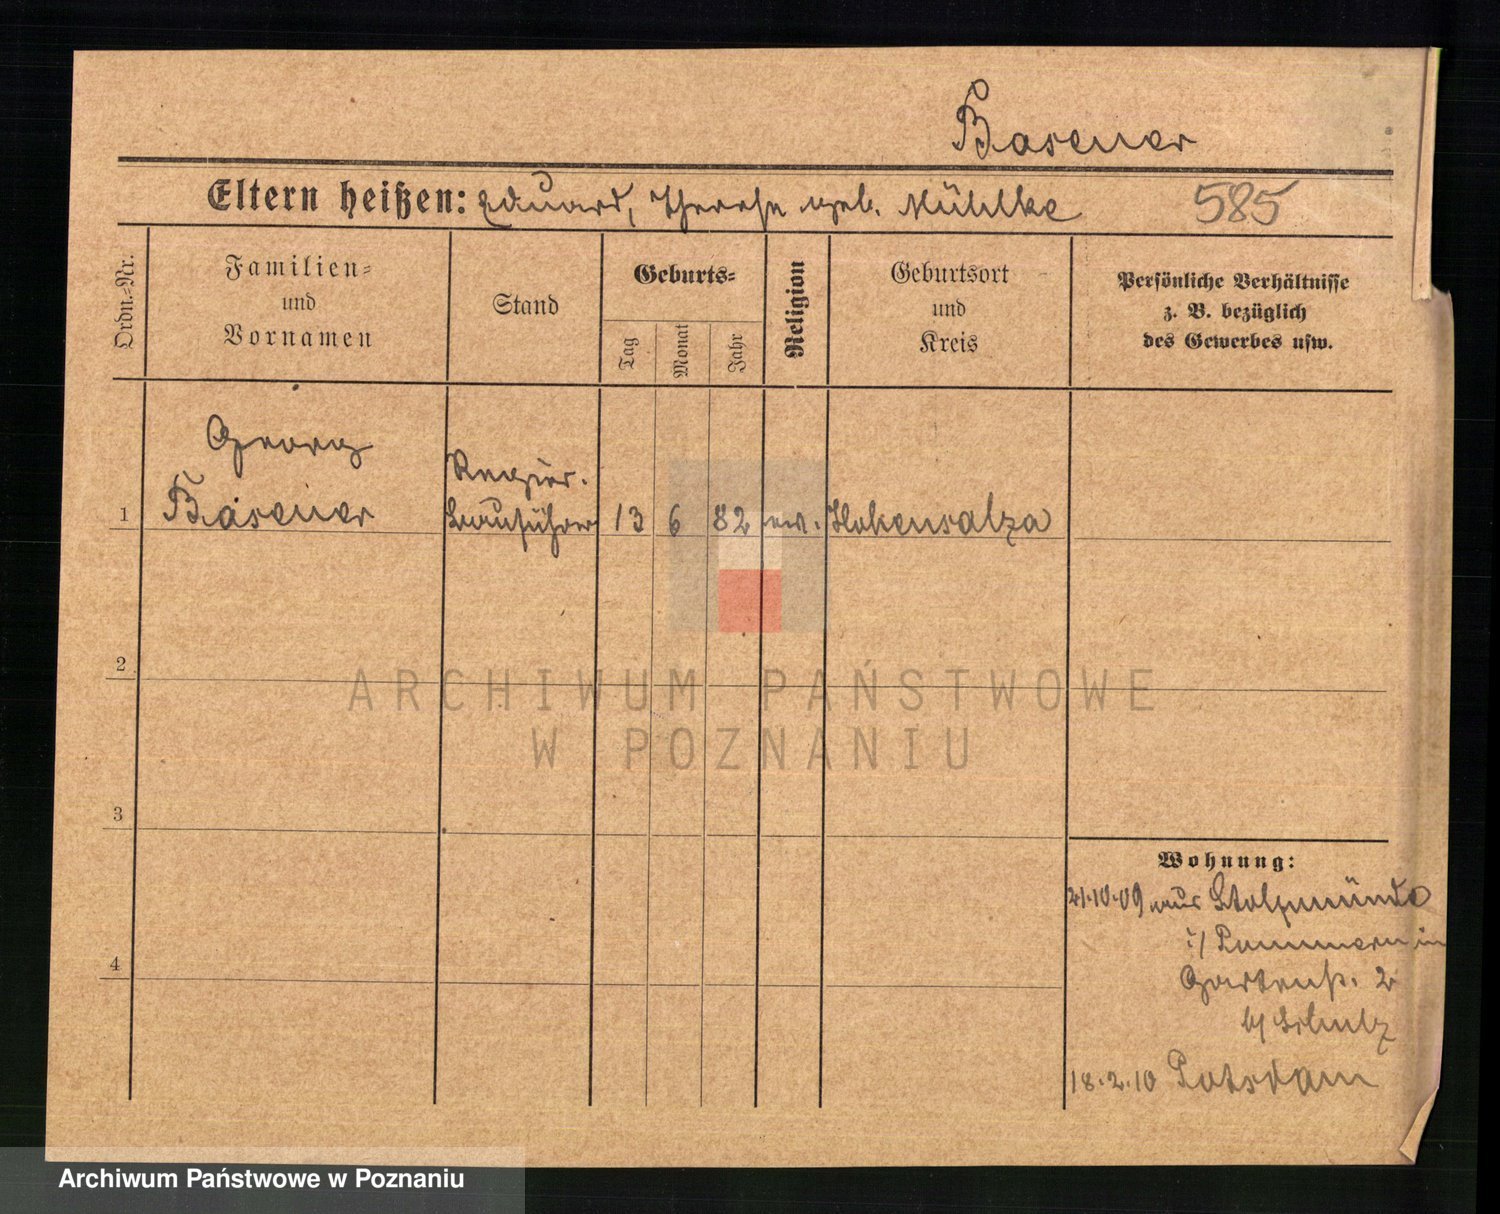 Basener
Eltern heißen: Eduard, Therese geb. Mühlke 585
Ordn.-Nr.
Familien-
und
Vornamen
Stand
Geburts-
Tag
Monat
Jahr
Religion
Geburtsort
und
Kreis
Persönliche Verhältnisse
z. B. bezüglich
des Gewerbes usw.
Georg
Regier.
1 Basener Bauführer 13 6 82 ev. Hohensalza
2
ARCHIWUM PAŃSTWOWE
W POZNANIU
3
Wohnung:
21.10.09 aus Stolpmünde
i/ Pommern in
Gartenstr. 2
b/ Schulz
4
18.2.10 Potsdam
Archiwum Państwowe w Poznaniu